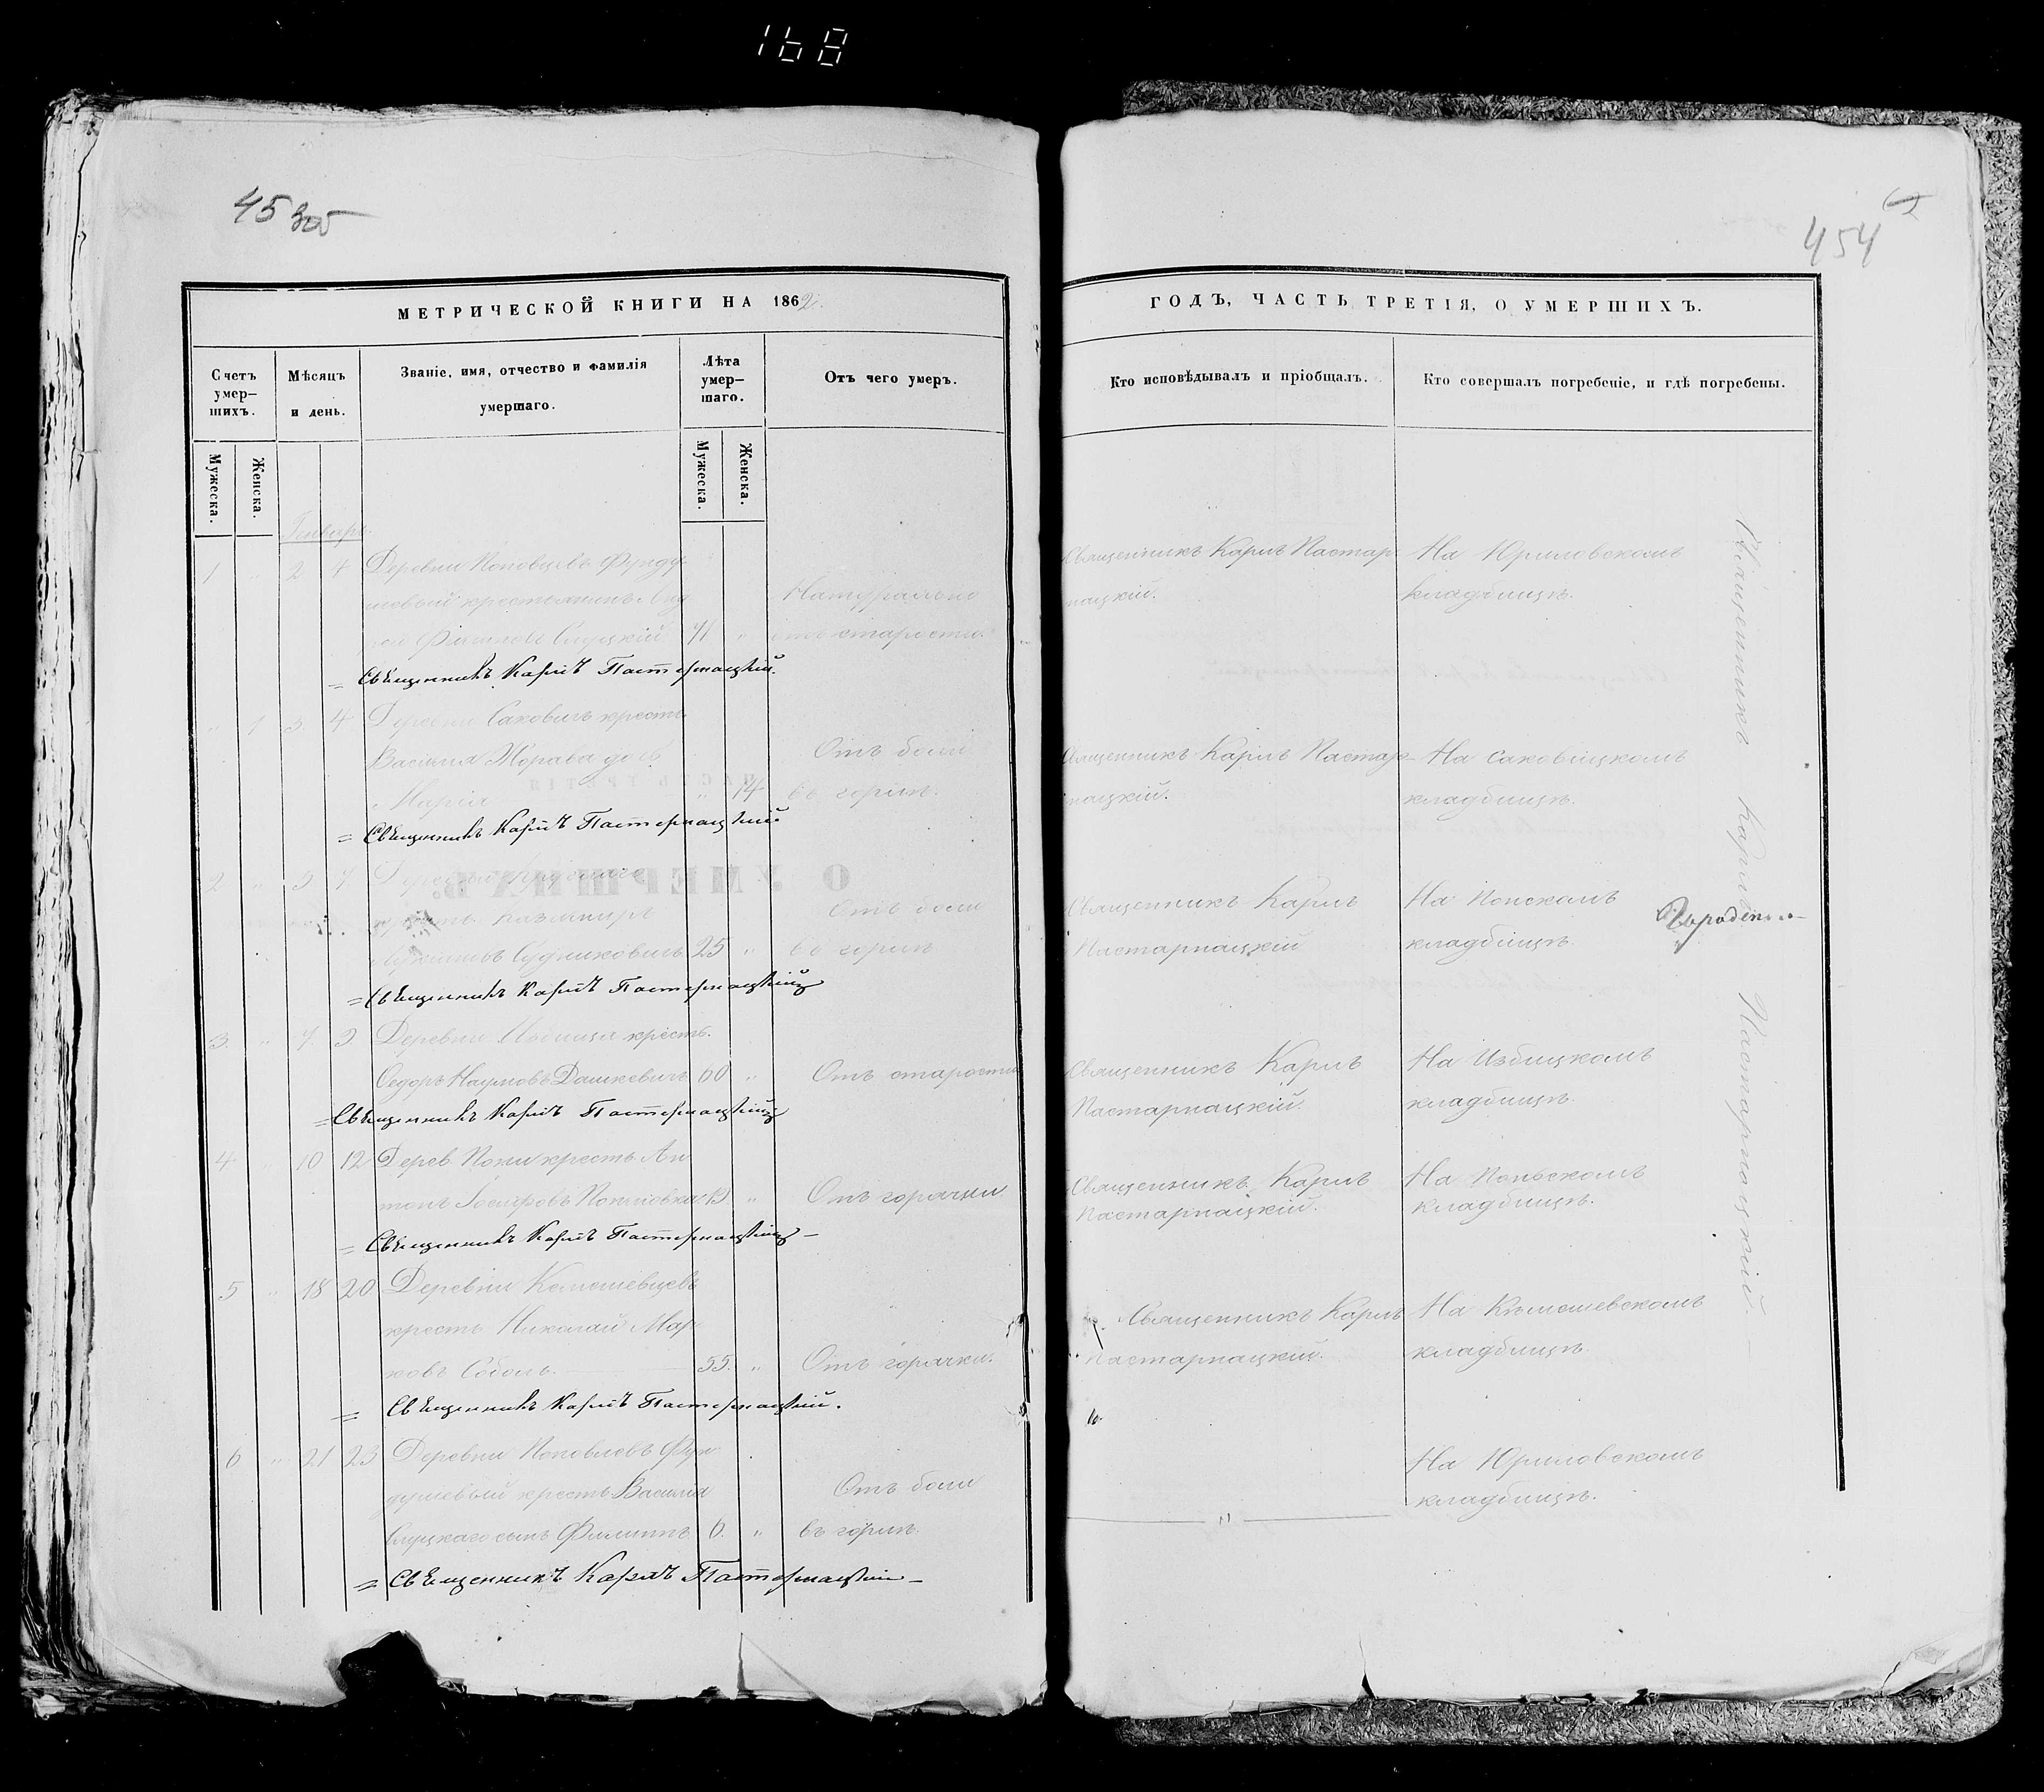 168
45 зоб
МЕТРИЧЕСКОЙ КНИГИ НА 1862.
Счетъ умер—шихъ.
Мѣсяцъ и день.
Званіе, имя, отчество и фамилія умершаго.
Лѣта умер—шаго.
Отъ чего умеръ.
Мужеска.
Женска.
Мужеска.
Женска.
Январь
1 " 2 4 Деревни Поповцевъ Фунду
шевый крестьянинъ Анд Натурально
Слуцкій 71 " отъ старости.
= Священникъ Карлъ Пастернацкій.
" 1 3 4 Деревни Саковичъ крестъ.
Василія Журава дочь Отъ боли
Марія " 14 въ горлѣ.
= Священникъ Карлъ Пастернацкій
2 " 5 7
крестъ. Казимиръ Отъ боли
Судниковичъ 25 " въ горлѣ
= Священникъ Карлъ Пастернацкій
3. " 7. 9 Деревни крестъ.
Ѳедоръ Наумовъ Дашкевичъ 60 " Отъ старости
= Священникъ Карлъ Пастернацкій
4 " 10 12 Дерев крестъ Ан
тонъ Іосифовъ " Отъ горячки
= Священникъ Карлъ Пастернацкій —
5 " 18 20 Деревни Кемешевцевъ
крестъ Николай Мар
ковъ Соболь. 55. " Отъ горячки.
= Священникъ Карлъ Пастернацкій.
6 " 21 23 Деревни Поповцевъ Фун
душевый крестъ Василія Отъ боли
Слуцкаго сынъ Филиппъ 6. " въ горлѣ.
= Священникъ Карлъ Пастернацкій —
454
ГОДЪ, ЧАСТЬ ТРЕТІЯ, О УМЕРШИХЪ.
Кто исповѣдывалъ и пріобщалъ.
Кто совершалъ погребеніе, и гдѣ погребены.
Священникъ Карлъ Пастар На Юриловскомъ
нацкій. кладбищѣ.
Священникъ Карлъ Пастар— На Саковицкомъ
нацкій. кладбищѣ.
Священникъ Карлъ На
Пастарнацкій кладбищѣ.
Священникъ Карлъ На Избицкомъ
Пастарнацкій. кладбищѣ.
Священникъ Карлъ На
Пастарнацкій. кладбищѣ.
Священникъ Карлъ На Кемешевскомъ
Пастарнацкій. кладбищѣ.
На Юриловскомъ
" кладбищѣ.
Священникъ Карлъ Пастарнацкій.